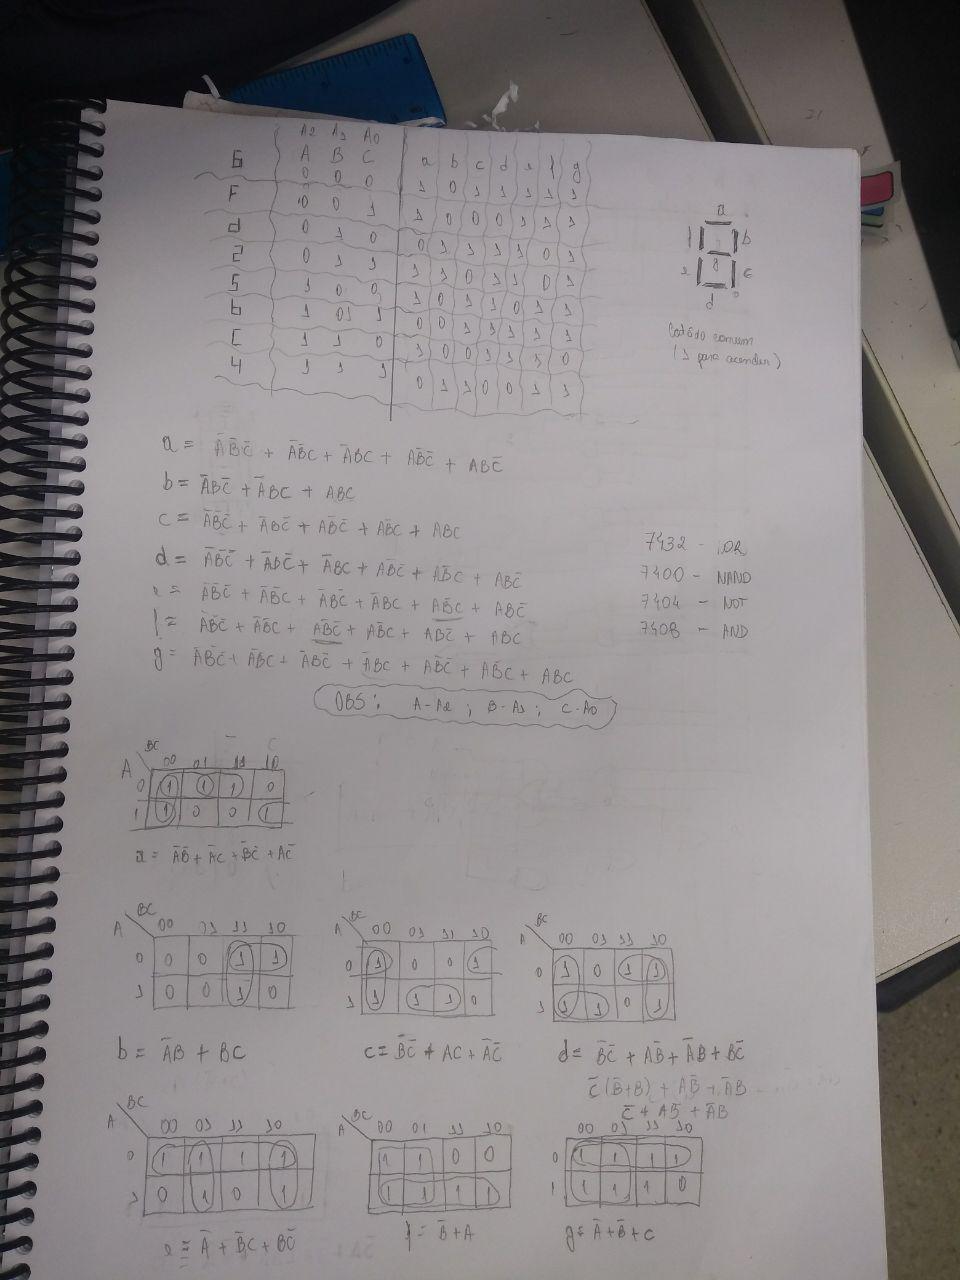 A2 A1 A0
6 A B C a b c d e f g
0 0 0 1 0 1 1 1 1 1
F 0 0 1 1 0 0 0 1 1 1
d 0 1 0 0 1 1 1 1 0 1
2 0 1 1 1 1 0 1 1 0 1
5 1 0 0 1 0 1 1 0 1 1
b 1 0 1 0 0 1 1 1 1 1
C 1 1 0 1 0 0 1 1 1 0
4 1 1 1 0 1 1 0 0 1 1
a
f b
g
e c
d
Catódo comum
(1 para acender)
a = A̅B̅C̅ + A̅B̅C + A̅BC + AB̅C̅ + ABC̅
b = A̅BC̅ + A̅BC + ABC
c = A̅B̅C̅ + A̅BC̅ + AB̅C̅ + AB̅C + ABC
d = A̅B̅C̅ + A̅BC̅ + A̅BC + AB̅C̅ + AB̅C + ABC̅
e = A̅B̅C̅ + A̅B̅C + A̅BC̅ + A̅BC + AB̅C + ABC̅
f = A̅B̅C̅ + A̅B̅C + AB̅C̅ + AB̅C + ABC̅ + ABC
g = A̅B̅C̅ + A̅B̅C + A̅BC̅ + A̅BC + AB̅C̅ + AB̅C + ABC
7432 - OR
7400 - NAND
7404 - NOT
7408 - AND
OBS: A-A2 ; B-A1 ; C-A0
BC
A 00 01 11 10
0 1 1 1 0
1 1 0 0 1
a = A̅B̅ + A̅C + B̅C̅ + AC̅
BC
A 00 01 11 10
0 0 0 1 1
1 0 0 1 0
b = A̅B + BC
BC
A 00 01 11 10
0 1 0 0 1
1 1 1 1 0
c = B̅C̅ + AC + A̅C̅
BC
A 00 01 11 10
0 1 0 1 1
1 1 1 0 1
d = B̅C̅ + AB̅ + A̅B + BC̅
C̅(B̅+B) + AB̅ + A̅B
C̅ + AB̅ + A̅B
BC
A 00 01 11 10
0 1 1 1 1
1 0 1 0 1
e = A̅ + B̅C + BC̅
BC
A 00 01 11 10
1 1 0 0
1 1 1 1
f = B̅ + A
00 01 11 10
0 1 1 1 1
1 1 1 1 0
g = A̅ + B̅ + C